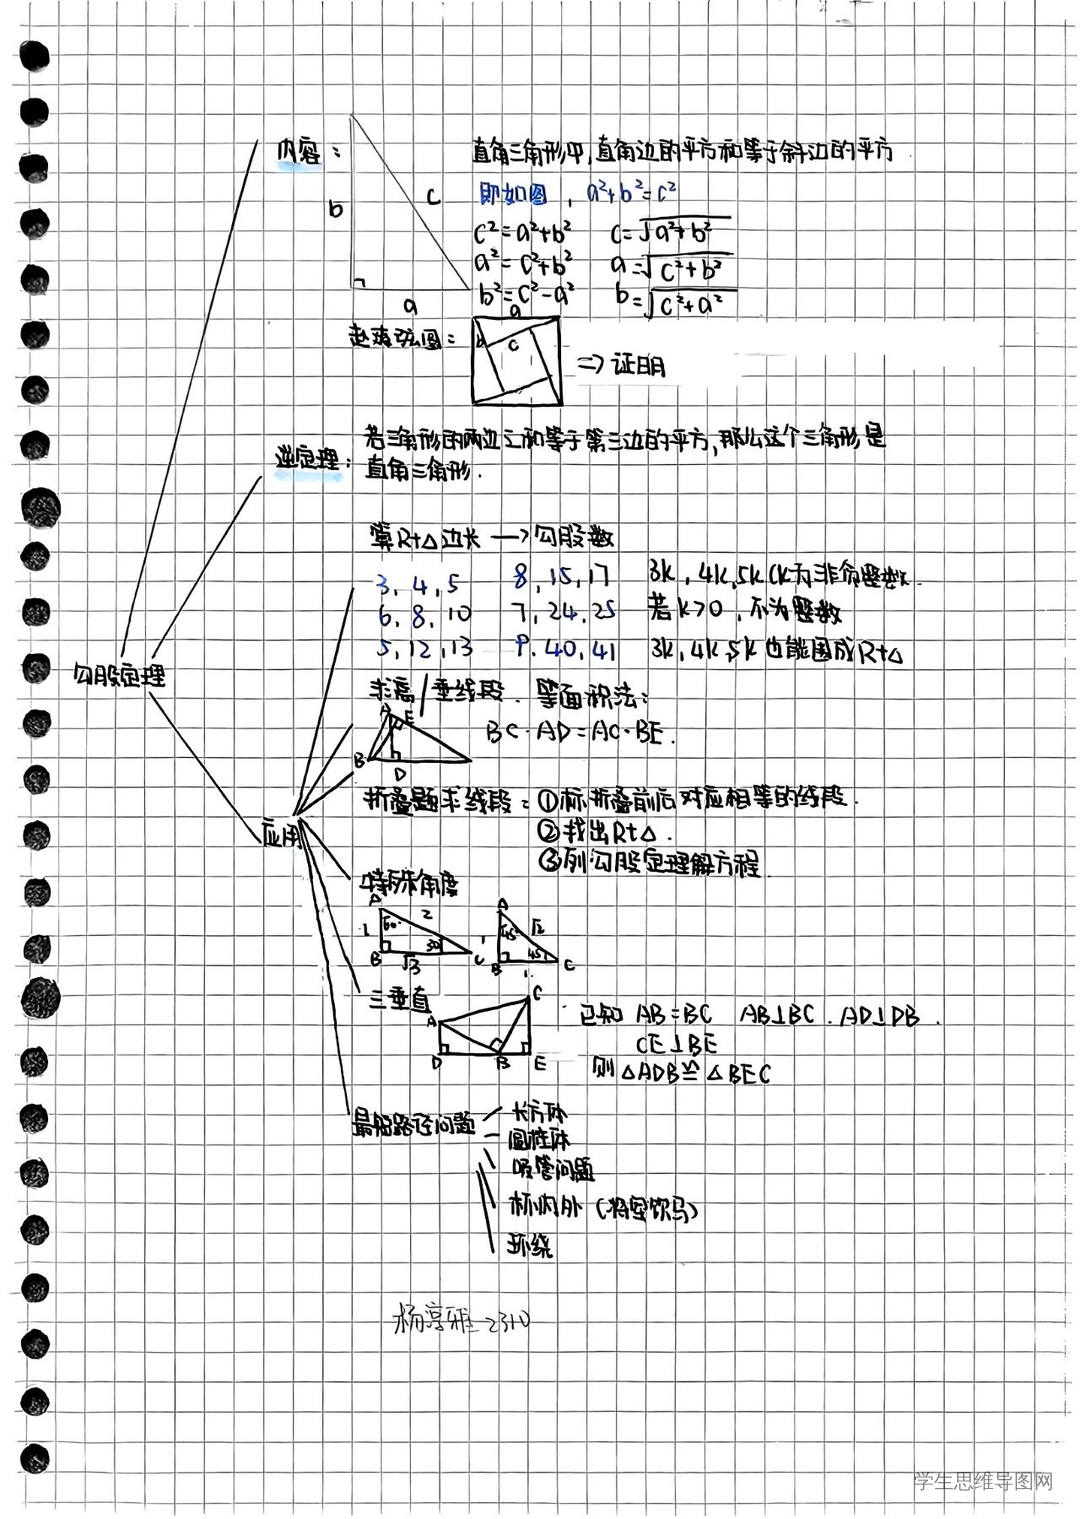 内容：
直角三角形中，直角边的平方和等于斜边的平方
即如图，a²+b²=c²
b
c
a
c²=a²+b² c=√a²+b²
a²=c²+b² a=√c²+b²
b²=c²-a² b=√c²+a²
赵爽弦图：
a
b
c
=> 证明
逆定理：
若三角形的两边之和等于第三边的平方，那么这个三角形是
直角三角形.
算Rt△边长 → 勾股数
3, 4, 5 8, 15, 17 3k, 4k, 5k (k为非负整数.
6, 8, 10 7, 24, 25 若k>0, 不为整数
5, 12, 13 9. 40, 41 3k, 4k, 5k也能围成Rt△
勾股定理
求高/垂线段. 等面积法：
A E
B D
BC·AD=AC·BE.
折叠题求线段：①标折叠前后对应相等的线段.
②找出Rt△.
③列勾股定理解方程.
应用
特殊角度
A 2
1 60° 30°
B √3 C
A
1 45° √2
B 45° C
1
三垂直
A C
D B E
已知 AB=BC AB⊥BC. AD⊥DB.
CE⊥BE
则△ADB≌△BEC
最短路径问题
长方体
圆柱体
吸管问题
杯内外（将军饮马）
环绕
杨淳雅 2310
学生思维导图网